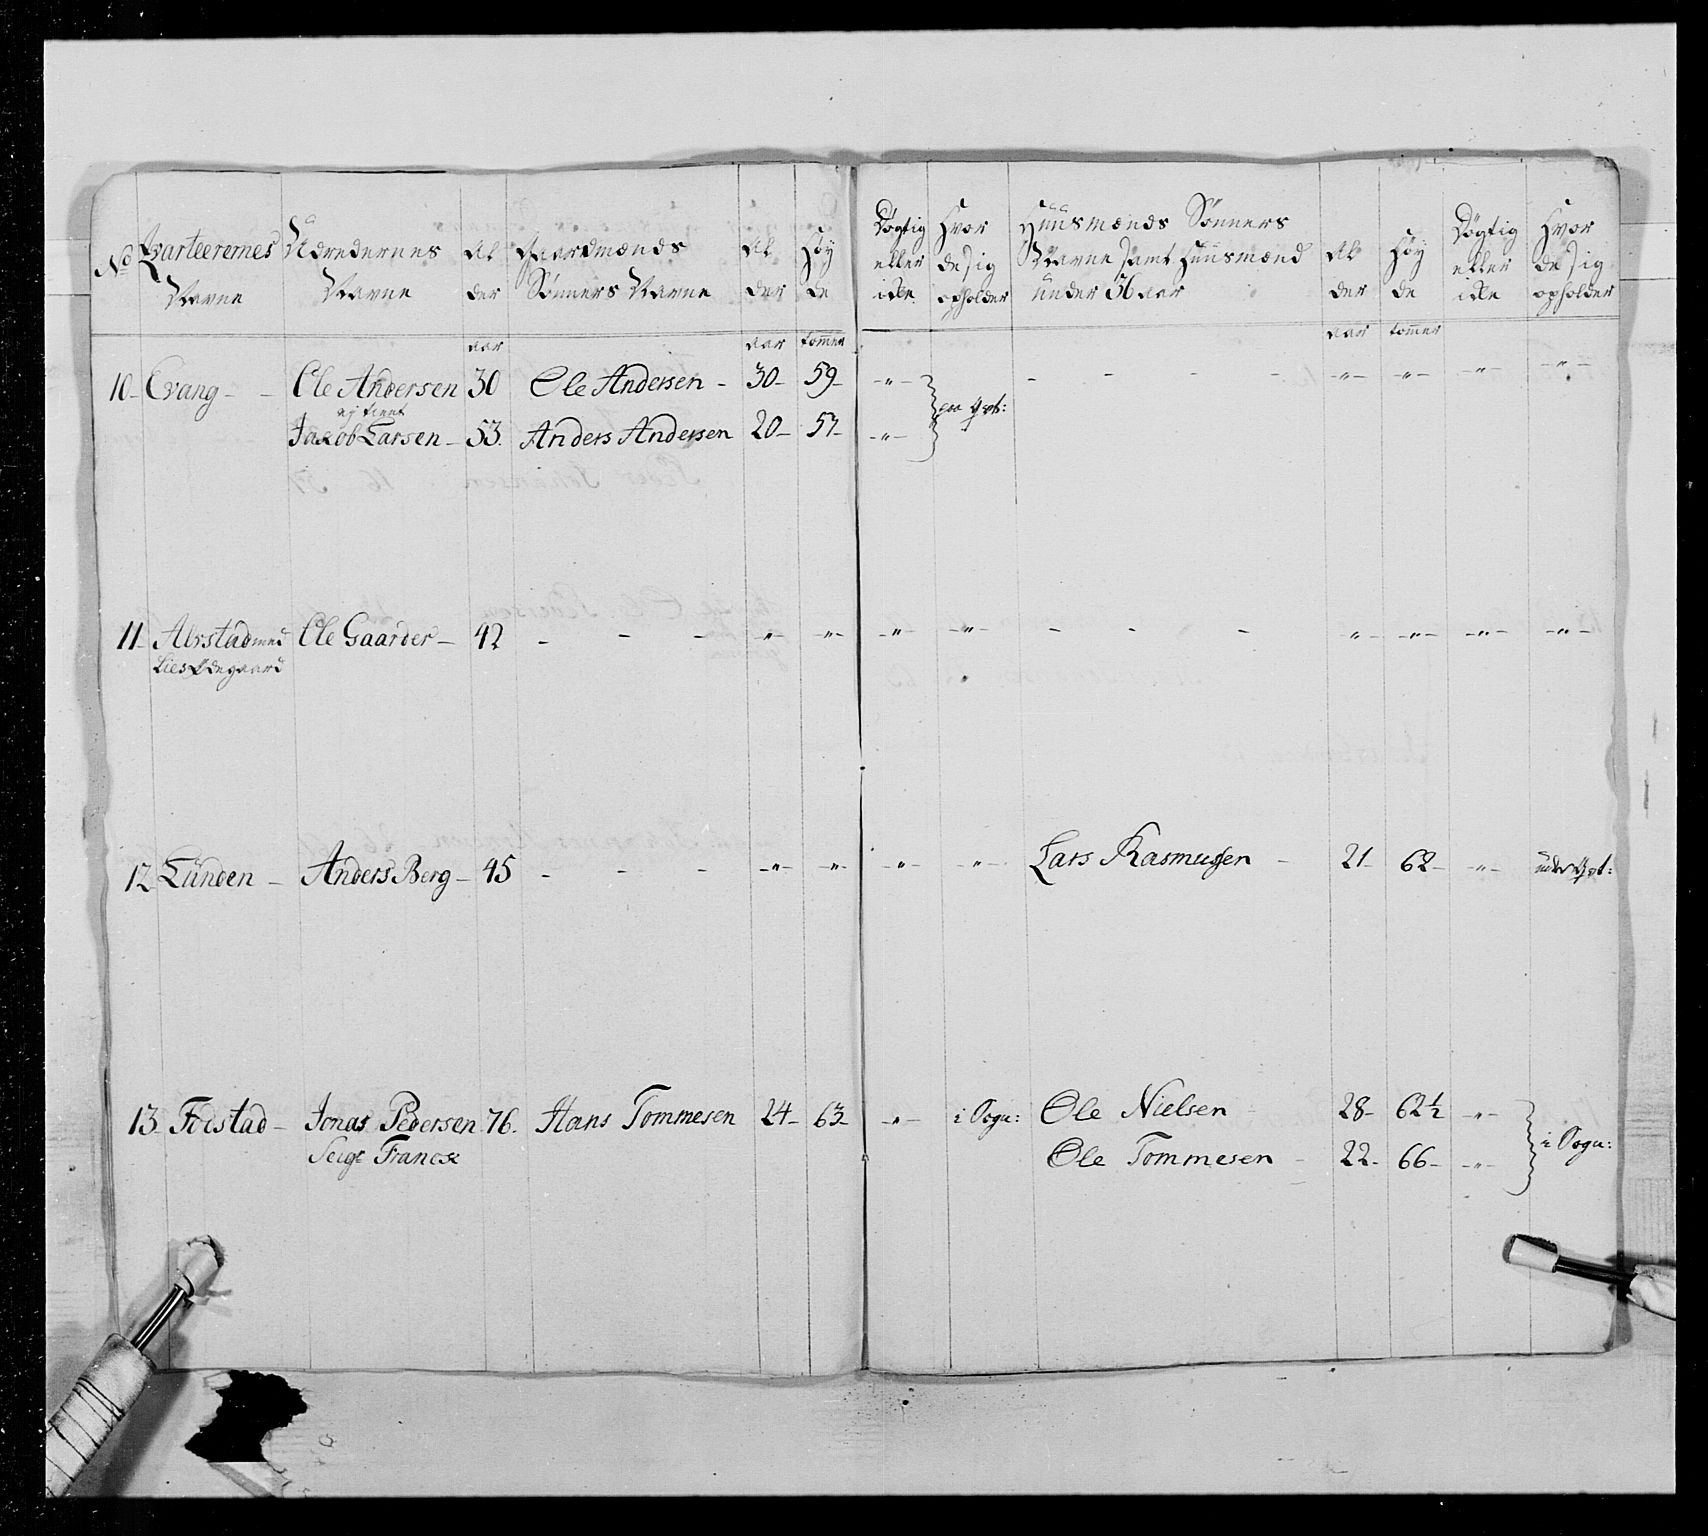 No Qvarteerernes Navne | Værendernes Navne | Al der | Gaardmænds Sønners Navne | Al der | Høy de | Døgtig eller ikke | Hvor de sig opholder | Huusmænds Sønners Navne samt Huusmænd under 36 aar | Al der | Høy de | Døgtig eller ikke | Hvor de sig opholder
aar | aar | tommer | aar | tommer
10 Evang - - Ole Andersen 30 Ole Andersen - 30 - 59 - - " - - - - - - " - - " - - " - - " -
ej tient
Jacob Larsen - 53. Anders Andersen 20 - 57 - - " - paa
11 Alvstad med Ole Gaarder - 42 - - - - " - - " - - " - - " - - - - - " - - " - - " - - " -
Lies Ødegaard
12 Lunden - Anders Berg - 45 - - - - " - - " - - " - - " - Lars Rasmussen - 21 62 - - " - under
13 Foestad - Jonas Pedersen 76. Hans Tommesen 24 - 63 - - " - i Sogn: Ole Nielsen 28 - 62½ - " -
Ole Tommesen - 22 - 66 - - " - i Sogn: